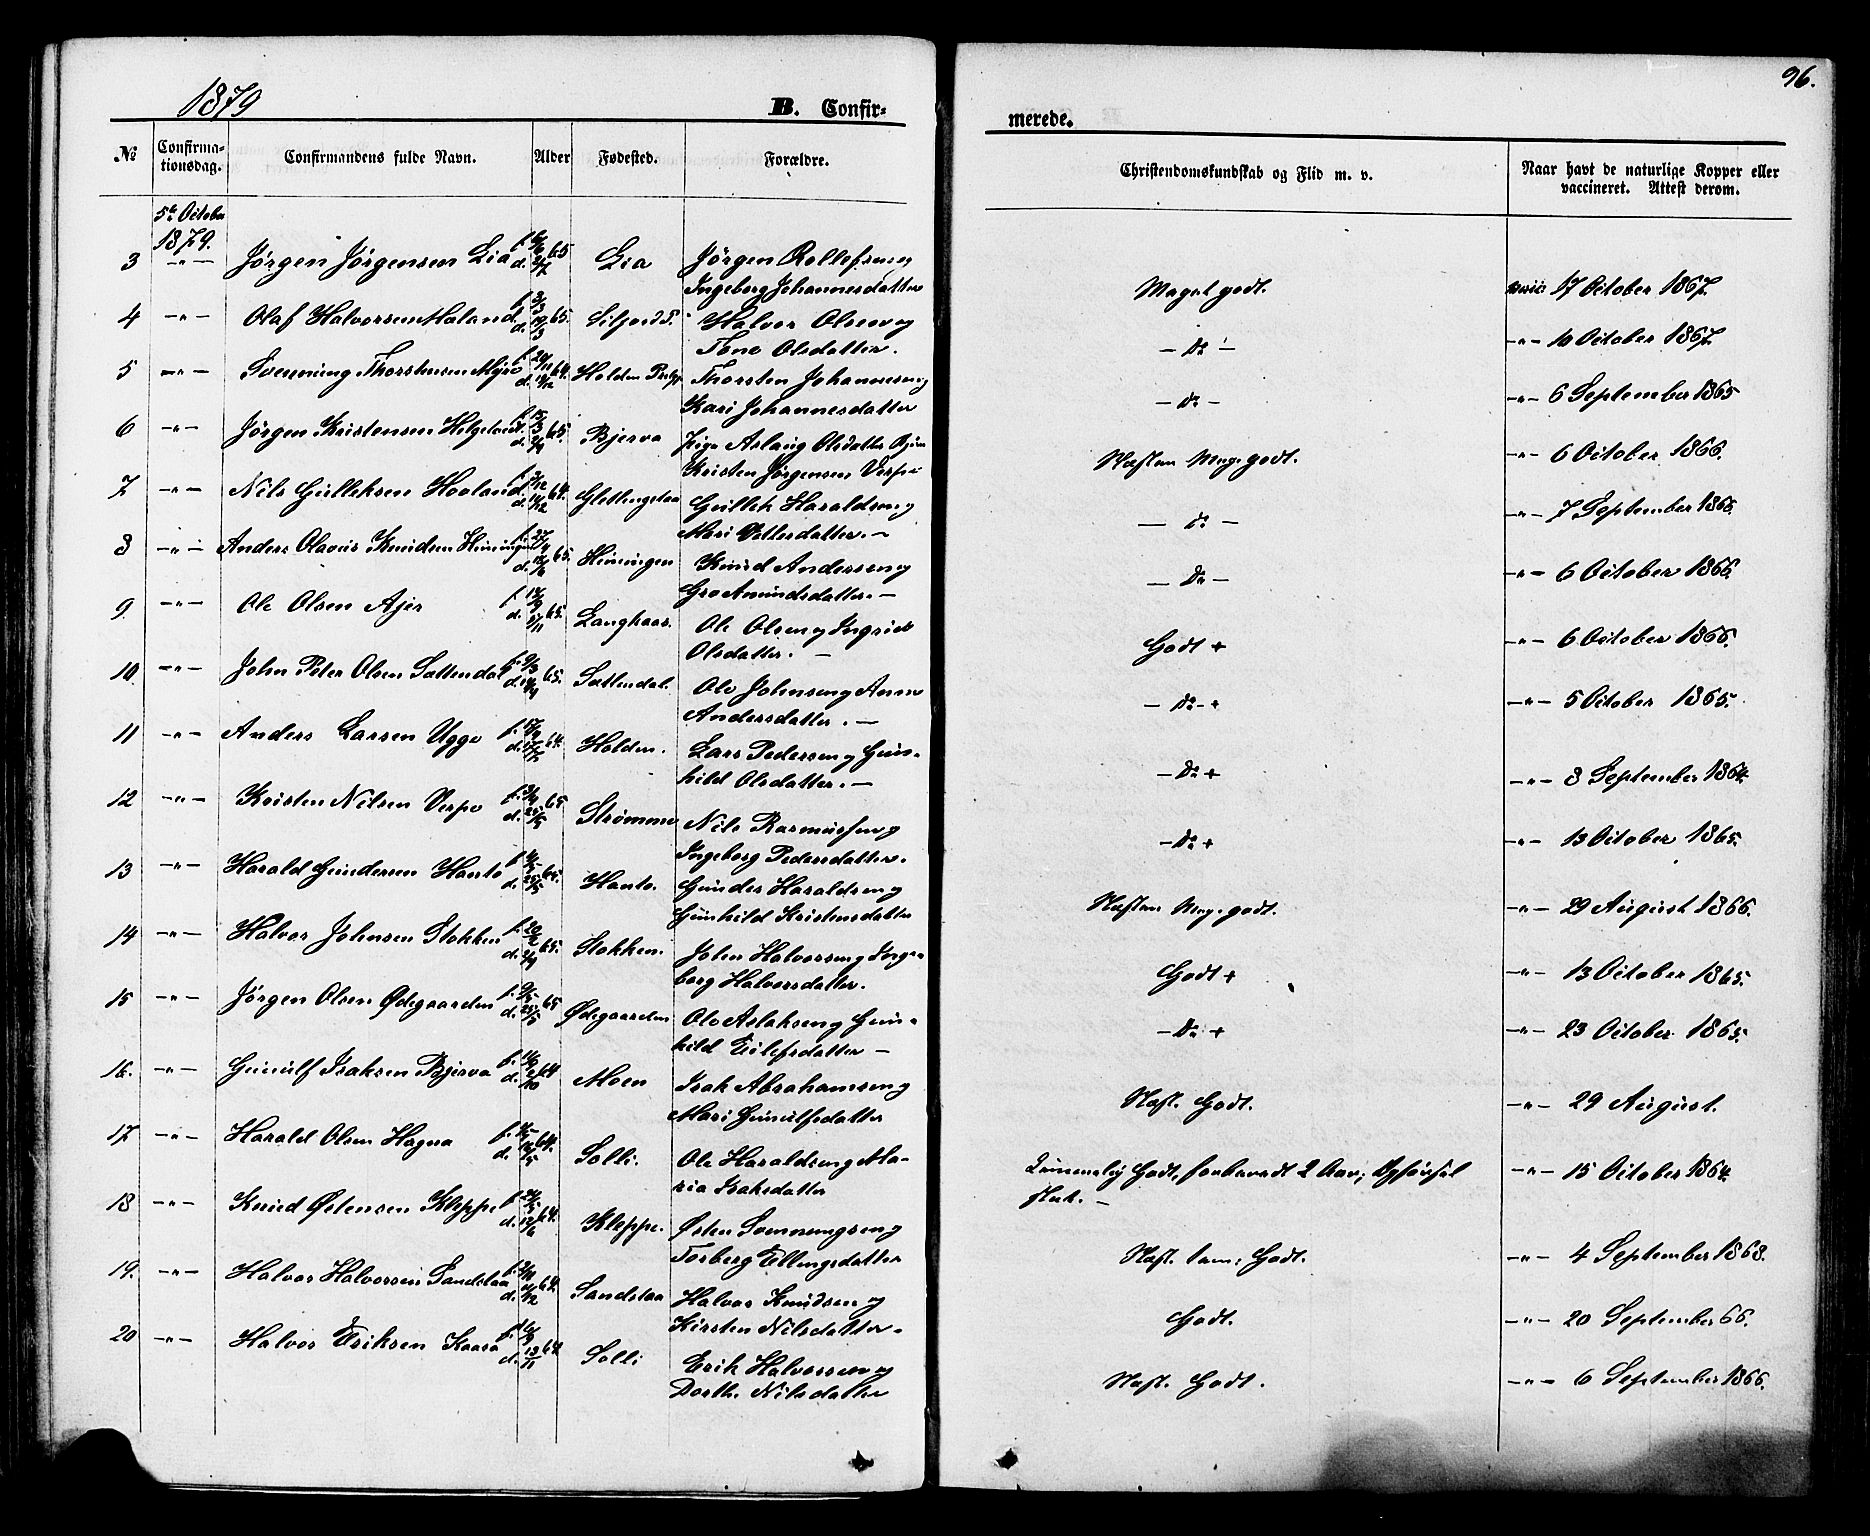 1879
B. Confir-
merede.
96.
№ Confirma-tionsdag. Confirmandens fulde Navn. Alder Fødested. Forældre. Christendomskundskab og Flid m. v. Naar havt de naturlige Kopper eller vaccineret. Attest derom.
5te October
1879.
3 -"- Jørgen Jørgensen Lia 65 Lia Jørgen Rollefsen og
Ingeborg Johannesdatter Meget godt. 17 October 1867.
4 -"- Olaf Halvorsen Moland 65. Siljord P. Halvor Olsen og
Tone Olsdatter. - Do - -"- 10 October 1867
5 -"- Svenning Thorstensen Myre 64. Holden Thorsten Johannesen og
Kari Johannesdatter - do - -"- 6 September 1865
6 -"- Jørgen Kristensen 65. Bjerva Pige Aslaug Olsdatter
Kristen Jørgensen Verpe Næsten Meg. godt. -"- 6 October 1866.
7 -"- Nils Gulleksen Hooland 64. Gullek Haraldsen og
Mari - - do - -"- 7 September 1865
8 -"- Anders Olavus Knudsen 65. Knud Andersen og
Gro Amundsdatter. - - Do - -"- 6 October 1866
9. -"- Ole Olsen Ajer 65. Langkaas. Ole Olsen og Ingrid
Olsdatter. - Godt + -"- 6 October 1866.
10 -"- John Peter Olsen Sattendal 65. Sattendal. Ole Johnsen og Anne
Andersdatter. - - Do - + -"- 5 October 1865.
11 -"- Anders Larsen Ugge 64. Holden. Lars Pedersen og Gun-
hild Olsdatter. - - Do + -"- 8 September 1864.
12 -"- Kristen Nilsen Verpe 65 Strømme Nils Rasmussen og
Ingeborg Pedersdatter. - Do + -"- 13 October 1865.
13 -"- Harald Gundersen Hanto 65. Hanto. Gunder Haraldsen og
Gunhild Kristensdatter Næsten Meg. godt. -"- 29 August 1866.
14 -"- Halvor Johnsen Stokken 65. Stokken. John Halvorsen og Inge-
borg Halvorsdatter. Godt + -"- 13 October 1865.
15 -"- Jørgen Olsen Ødegaarden 65 Ødegaarden Ole Aslaksen og Gun-
hild Eilefsdatter - - Do + -"- 23 October 1865.
16. -"- Gunulf Isaksen Bjerva 64 Moen Isak Abrahamsen og
Mari Gunulfsdatter Næst. Godt. -"- 29 August.
17 -"- Harald Olsen Hagna 64. Solli. Ole Haraldsen og Ma-
ria Isaksdatter Godt, 2 Aar; Opførsel
slet. - -"- 15 October 1864.
18 -"- Knud Østensen Kleppe 64. Kleppe. Østen Svennungsen og
Torberg Ellingsdatter Næst. Godt. -"- 4 September 1868.
19. -"- Halvor Halvorsen Sandstaa 64. Sandstaa Halvor Knudsen og
Kirsten Nilsdatter. Godt. -"- 20 September 66.
20 -"- Halvor Eriksen Kaasa 64. Solli Erik Halvorsen og
Dorthe Nilsdatter Næst. Godt. -"- 6 September 1866.